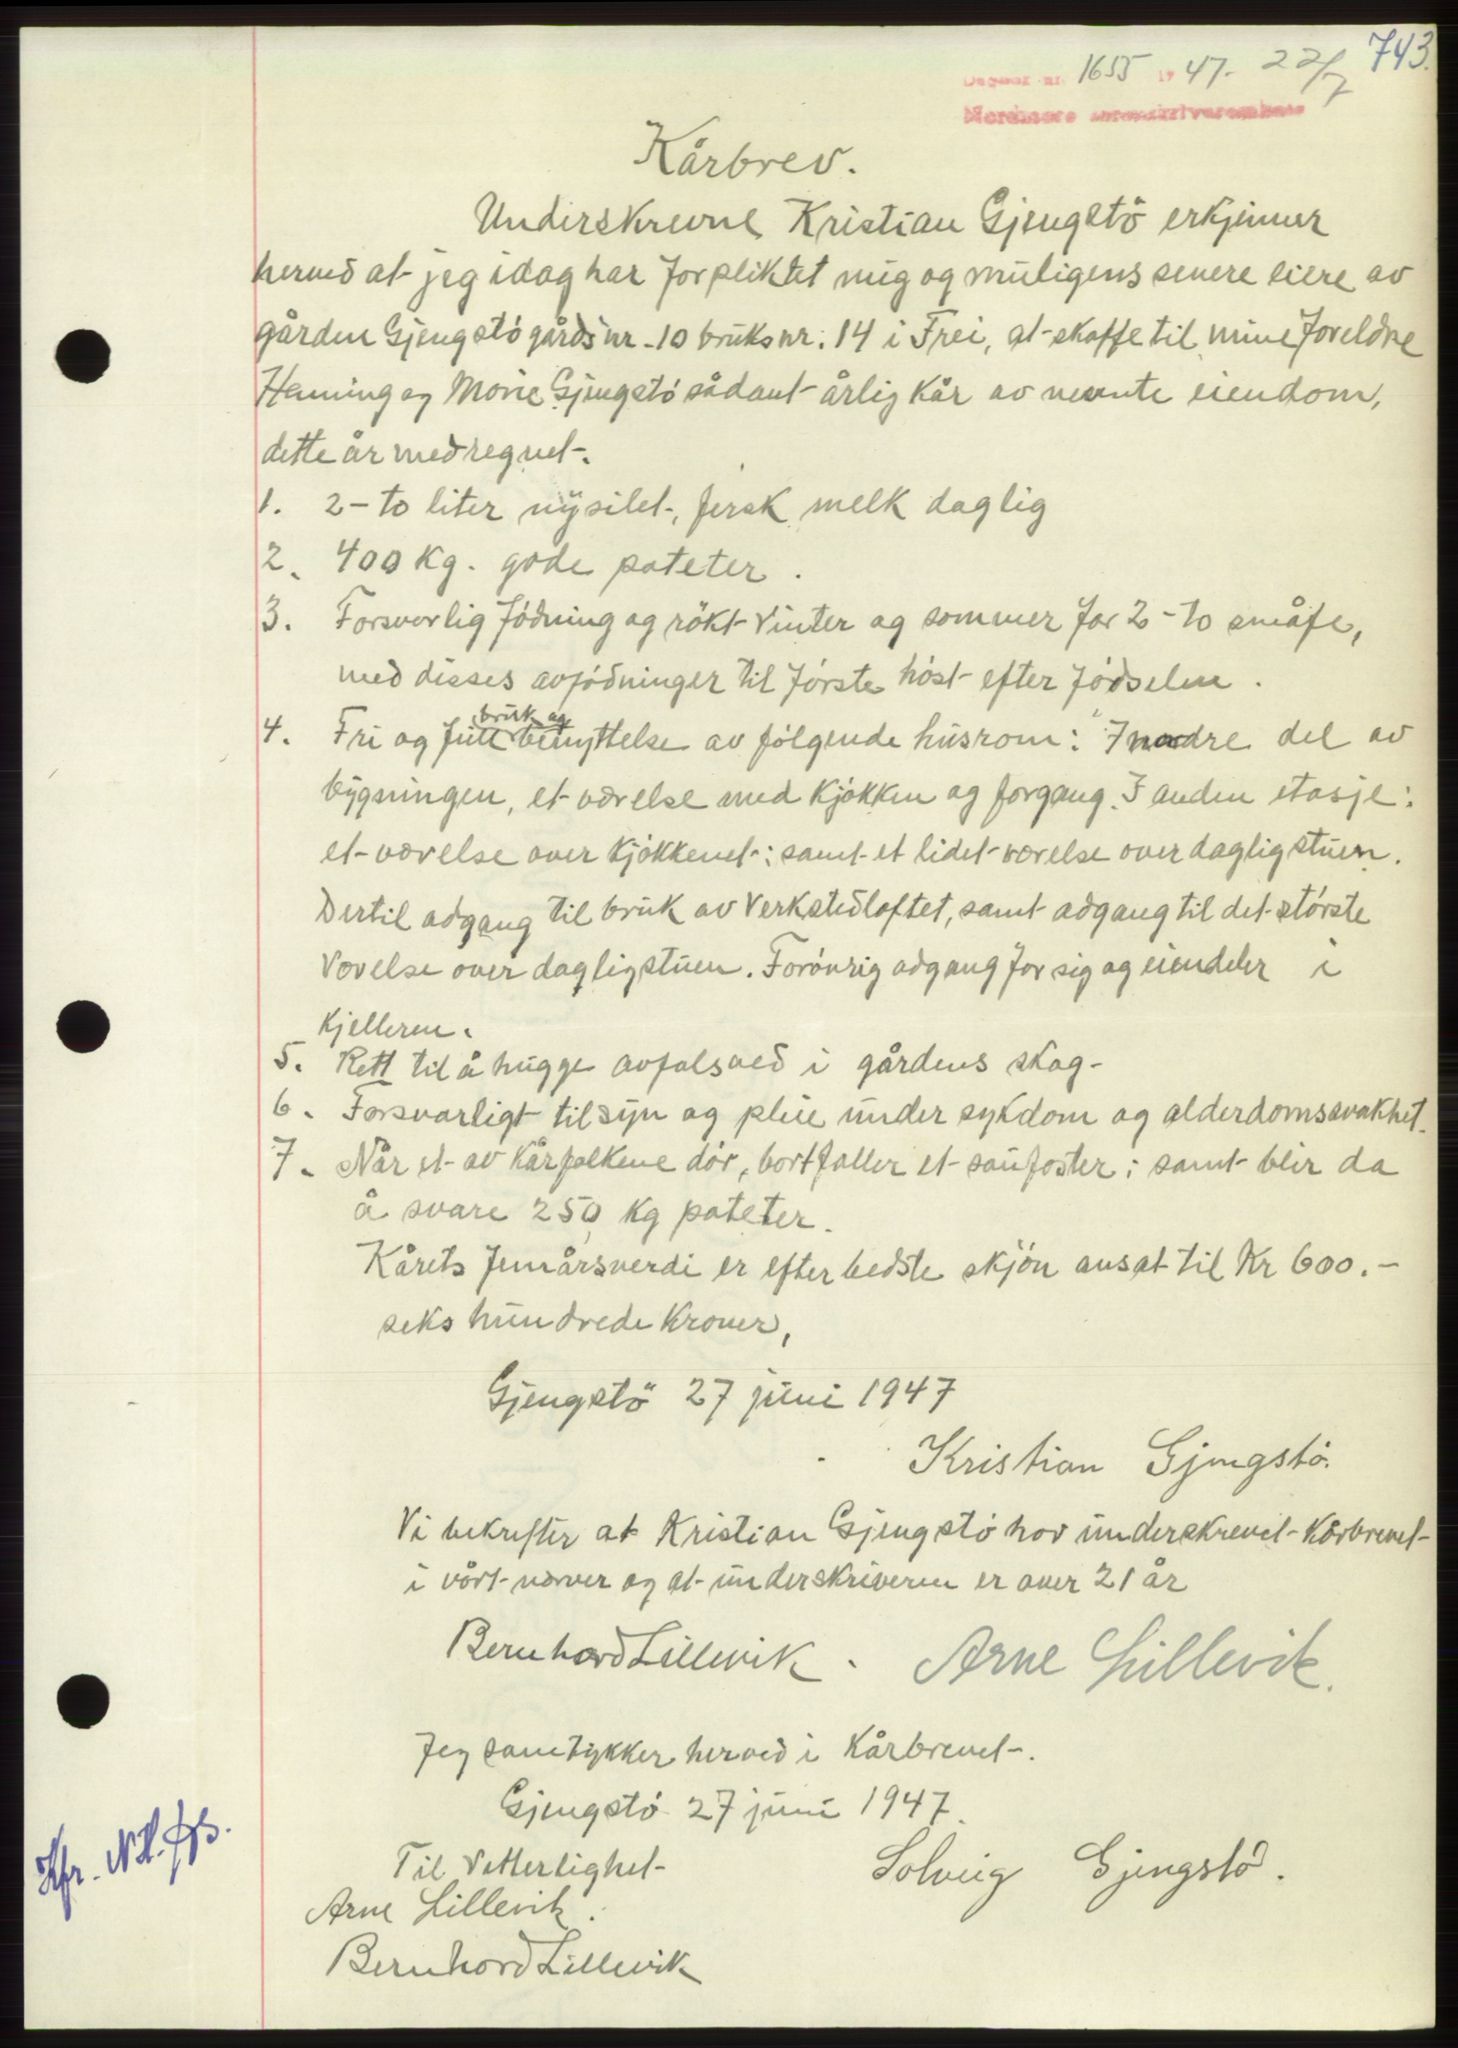 743.
Dagbok nr. 1655 19 47. 22/7
Nordmøre sorenskriverembete
Kårbrev.
Underskrevne Kristian Gjengstö erkjenner
herved at jeg idag har forpliktet mig og muligens senere eiere av
gården Gjengstö gårdsnr. 10 bruksnr. 14 i Frei, at skaffe til mine foreldre
Henning og Marie Gjengstö sådant årlig kår av nevnte eiendom,
dette år medregnet.
1. 2 - to liter nysilet, fersk melk daglig
2. 400 kg. gode poteter.
3. Forsvarlig födning og rökt vinter og sommer for 2 - to småfe,
med disses avfödninger til förste höst efter födselen.
4. Fri og full bruk og benyttelse av fölgende husrom: I nordre del av
bygningen, et værelse med kjökken og forgang. I anden etasje:
et værelse over kjökkenet; samt et lidet værelse over dagligstuen.
Dertil adgang til bruk av verkstedloftet, samt adgang til det störste
værelse over dagligstuen. Forövrig adgang for sig og eiendeler i
kjelleren.
5. Rett til å hugge avfalsved i gårdens skog -
6. Forsvarligt tilsyn og pleie under sykdom og alderdomssvakhet.
7. Når et av kårfolkene dör, bortfaller et saufoster; samt blir da
å svare 250 kg poteter.
Kårets femårsverdi er efter bedste skjön ansat til Kr 600.-
seks hundrede kroner,
Gjengstö 27 juni 1947
Kristian Gjengstö.
Vi bekrefter at Kristian Gjengstö har underskrevet kårbrevet
i vårt nærver og at underskriveren er over 21 år
Bernhard Lillevik. Arne Lillevik.
Jeg samtykker herved i kårbrevet.
Gjengstö 27 juni 1947.
Til Vitterlighet
Solveig Gjengstö.
Arne Lillevik.
Bernhard Lillevik